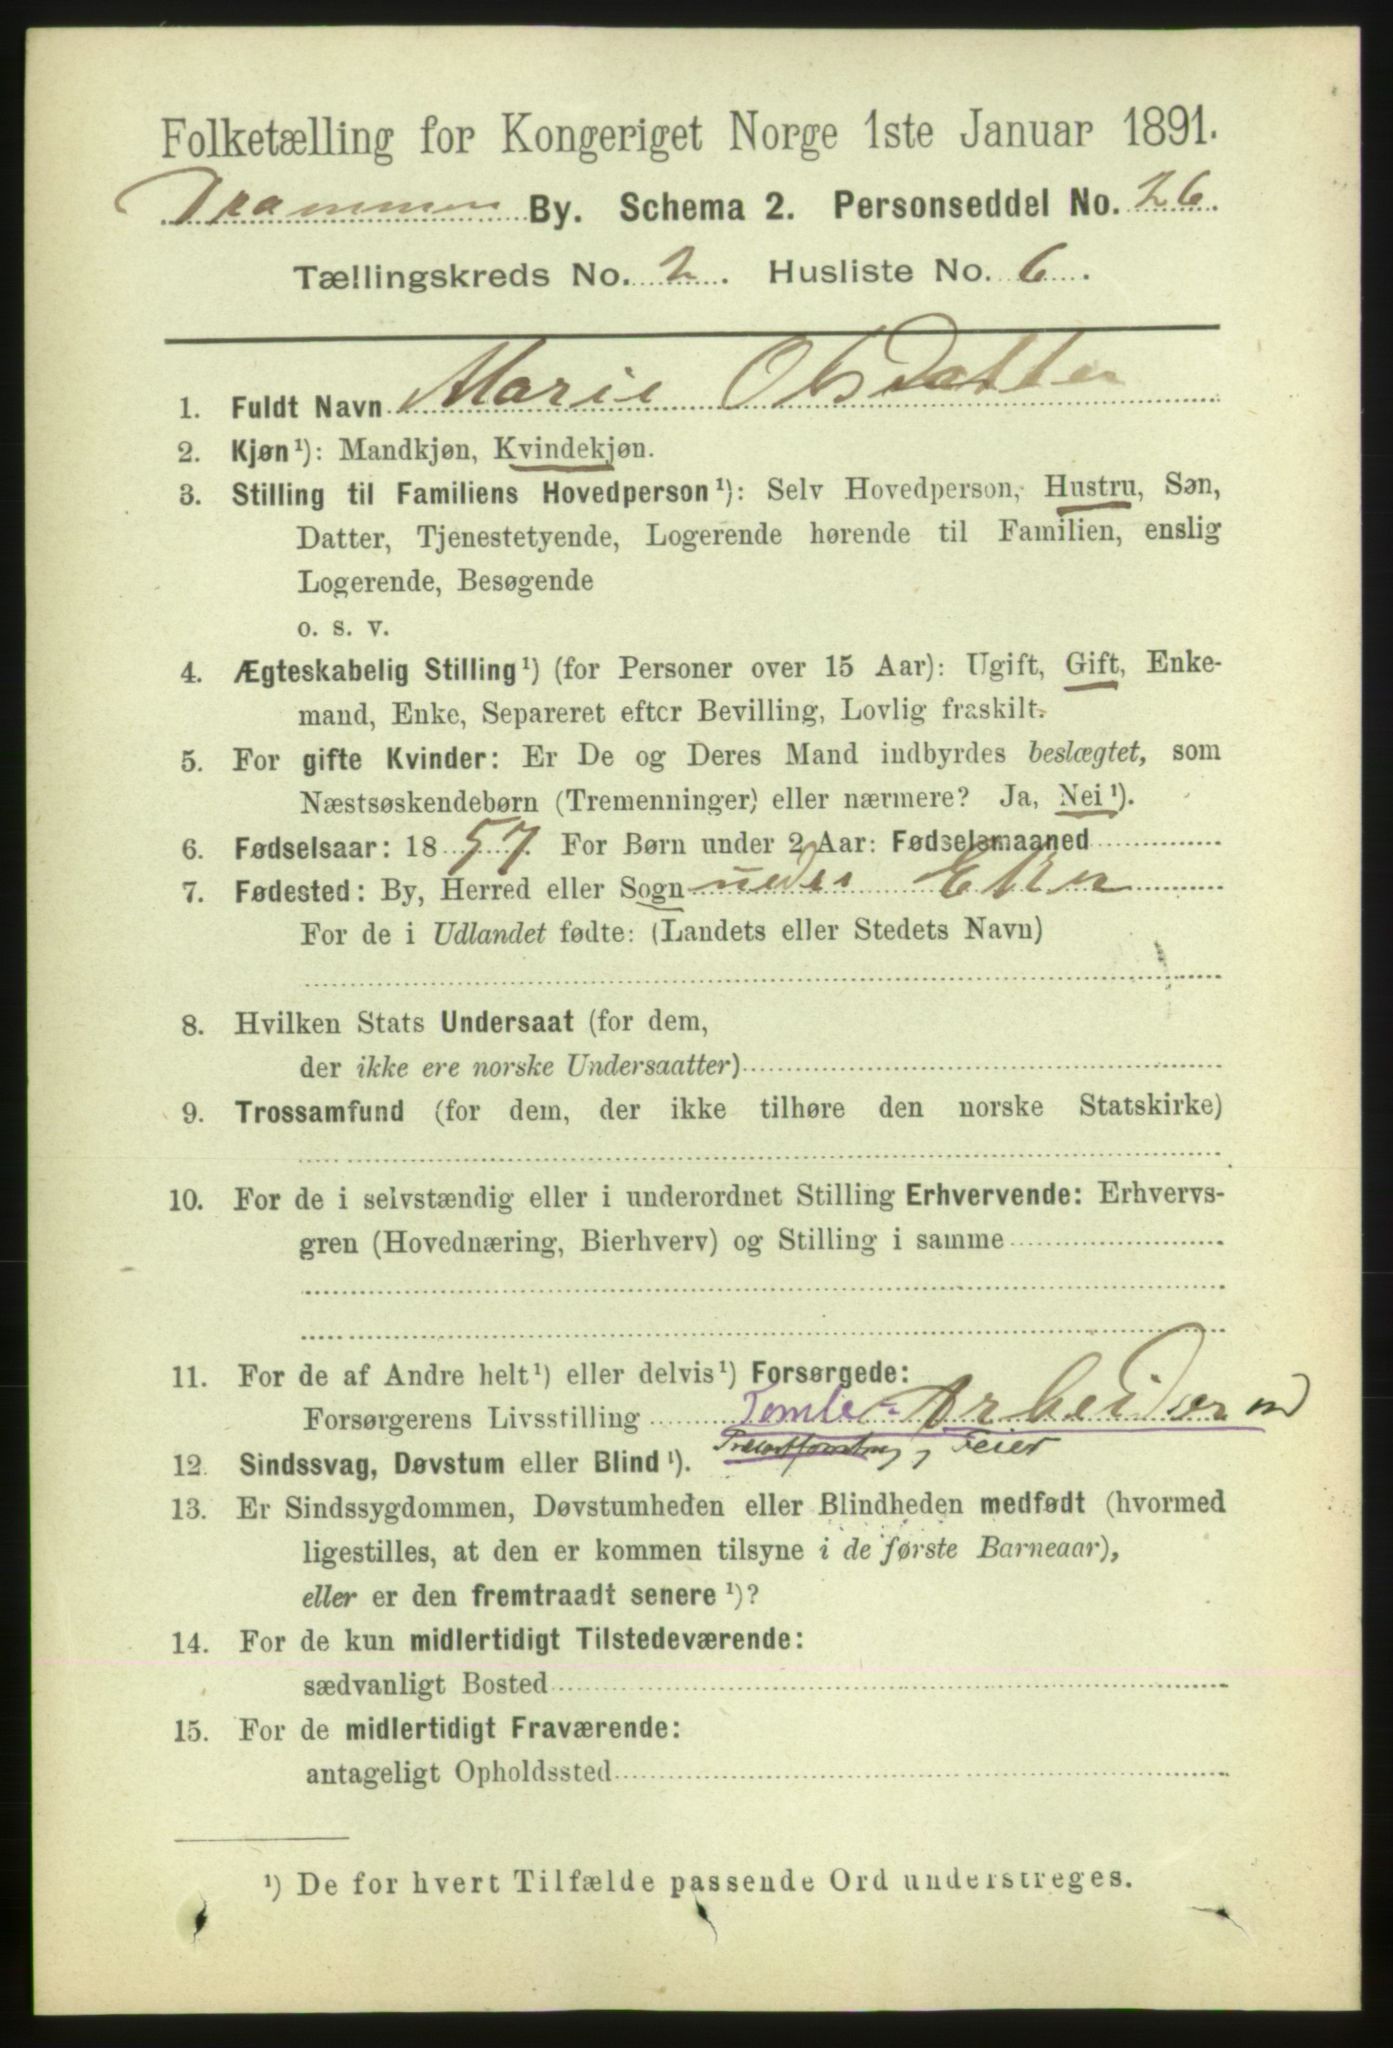 Folketælling for Kongeriget Norge 1ste Januar 1891.
Drammen By. Schema 2. Personseddel No. 26.
Tællingskreds No. 2. Husliste No. 6.
1. Fuldt Navn Marie Olsdatter
2. Kjøn¹): Mandkjøn, Kvindekjøn.
3. Stilling til Familiens Hovedperson¹): Selv Hovedperson, Hustru, Søn,
Datter, Tjenestetyende, Logerende hørende til Familien, enslig
Logerende, Besøgende
o. s. v.
4. Ægteskabelig Stilling¹) (for Personer over 15 Aar): Ugift, Gift, Enke-
mand, Enke, Separeret efter Bevilling, Lovlig fraskilt.
5. For gifte Kvinder: Er De og Deres Mand indbyrdes beslægtet, som
Næstsøskendebørn (Tremenninger) eller nærmere? Ja, Nei¹).
6. Fødselsaar: 1857. For Børn under 2 Aar: Fødselsmaaned
7. Fødested: By, Herred eller Sogn neder Eker
For de i Udlandet fødte: (Landets eller Stedets Navn)
8. Hvilken Stats Undersaat (for dem,
der ikke ere norske Undersaatter)
9. Trossamfund (for dem, der ikke tilhøre den norske Statskirke)
10. For de i selvstændig eller i underordnet Stilling Erhvervende: Erhvervs-
gren (Hovednæring, Bierhverv) og Stilling i samme
11. For de af Andre helt¹) eller delvis¹) Forsørgede:
Forsørgerens Livsstilling Tomte-Arbeider
Feier
12. Sindssvag, Døvstum eller Blind¹).
13. Er Sindssygdommen, Døvstumheden eller Blindheden medfødt (hvormed
ligestilles, at den er kommen tilsyne i de første Barneaar),
eller er den fremtraadt senere¹)?
14. For de kun midlertidigt Tilstedeværende:
sædvanligt Bosted
15. For de midlertidigt Fraværende:
antageligt Opholdssted
¹) De for hvert Tilfælde passende Ord understreges.